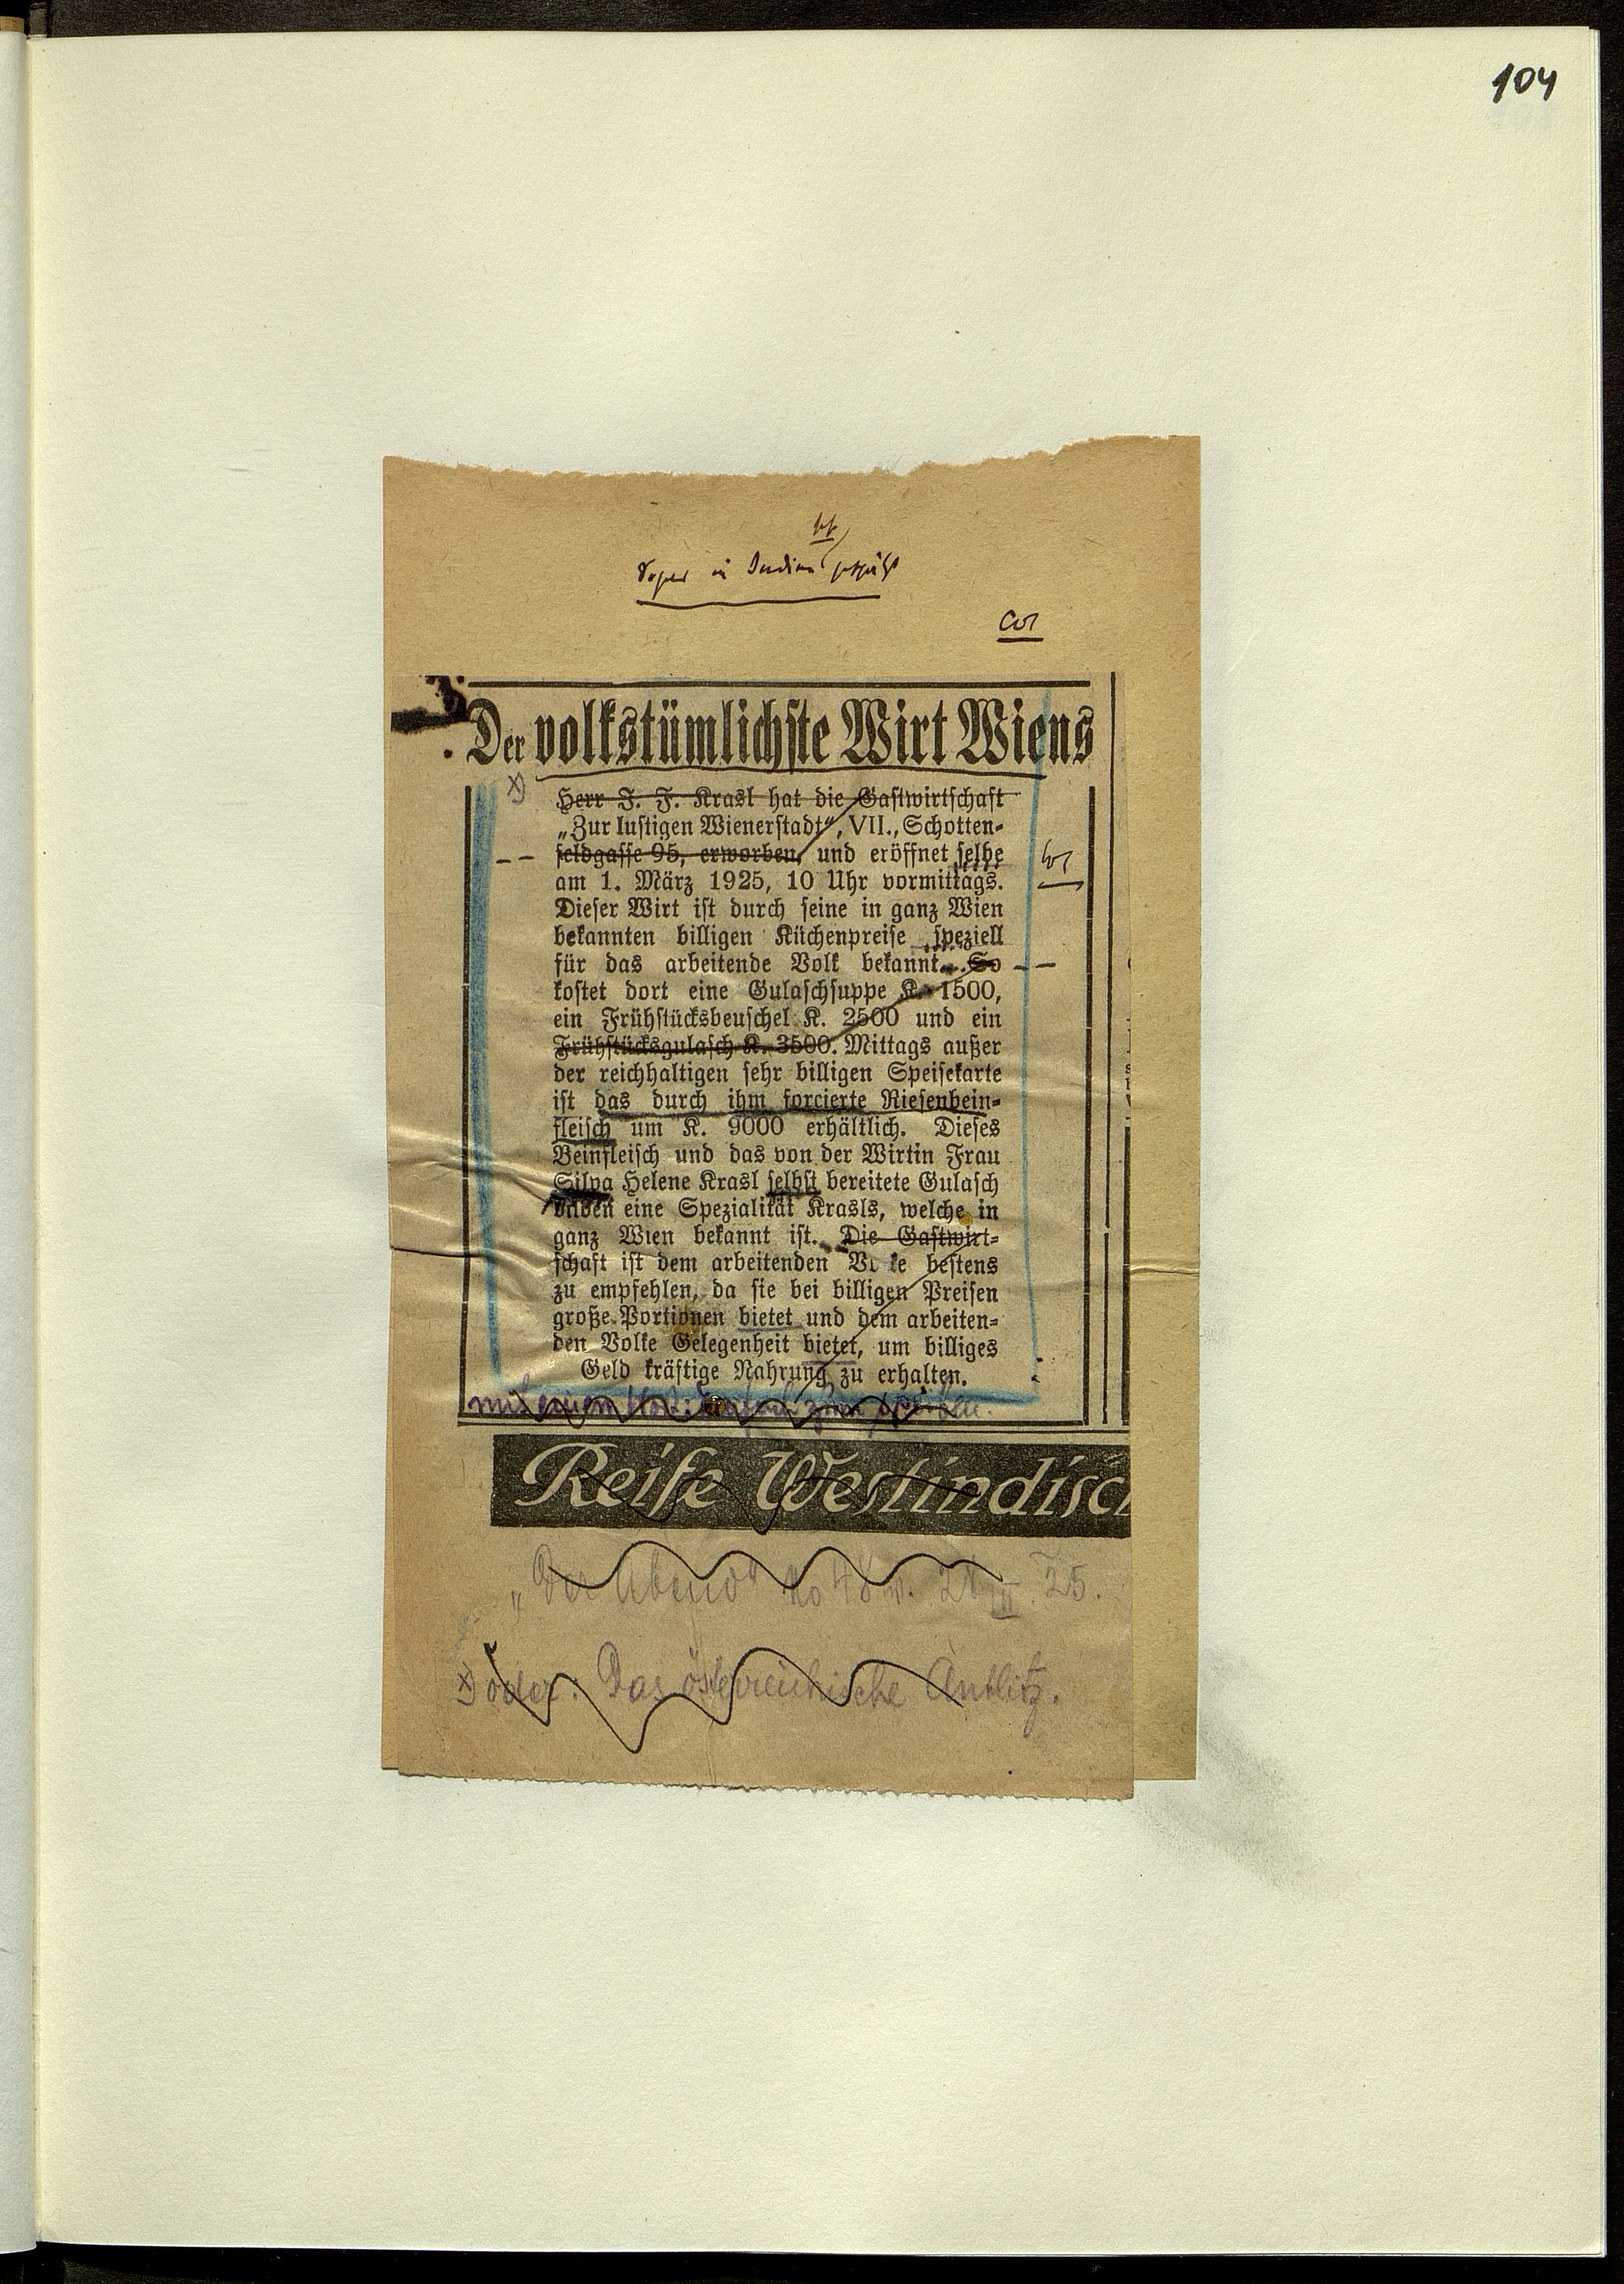 104
Sogar in Indien
Cor
Der volkstümlichste Wirt Wiens
x)
Herr J. F. Krasl hat die Gastwirtschaft
„Zur lustigen Wienerstadt“, VII., Schotten-
feldgasse 95, erworben, und eröffnet selbe
am 1. März 1925, 10 Uhr vormittags.
Dieser Wirt ist durch seine in ganz Wien
bekannten billigen Küchenpreise speziell
für das arbeitende Volk bekannt. So
kostet dort eine Gulaschsuppe K. 1500,
ein Frühstücksbeuschel K. 2500 und ein
Frühstücksgulasch K. 3500. Mittags außer
der reichhaltigen sehr billigen Speisekarte
ist das durch ihm forcierte Riesenbein-
fleisch um K. 9000 erhältlich. Dieses
Beinfleisch und das von der Wirtin Frau
Silva Helene Krasl selbst bereitete Gulasch
bilden eine Spezialität Krasls, welche in
ganz Wien bekannt ist. Die Gastwirt-
schaft ist dem arbeitenden Volke bestens
zu empfehlen, da sie bei billigen Preisen
große Portionen bietet und dem arbeiten-
den Volke Gelegenheit bietet, um billiges
Geld kräftige Nahrung zu erhalten.
mit einem Wort: zum
Reife Westindisch
„Der Abend“ No 48 v. 28. II. 25.
x) oder: Das österreichische Antlitz.